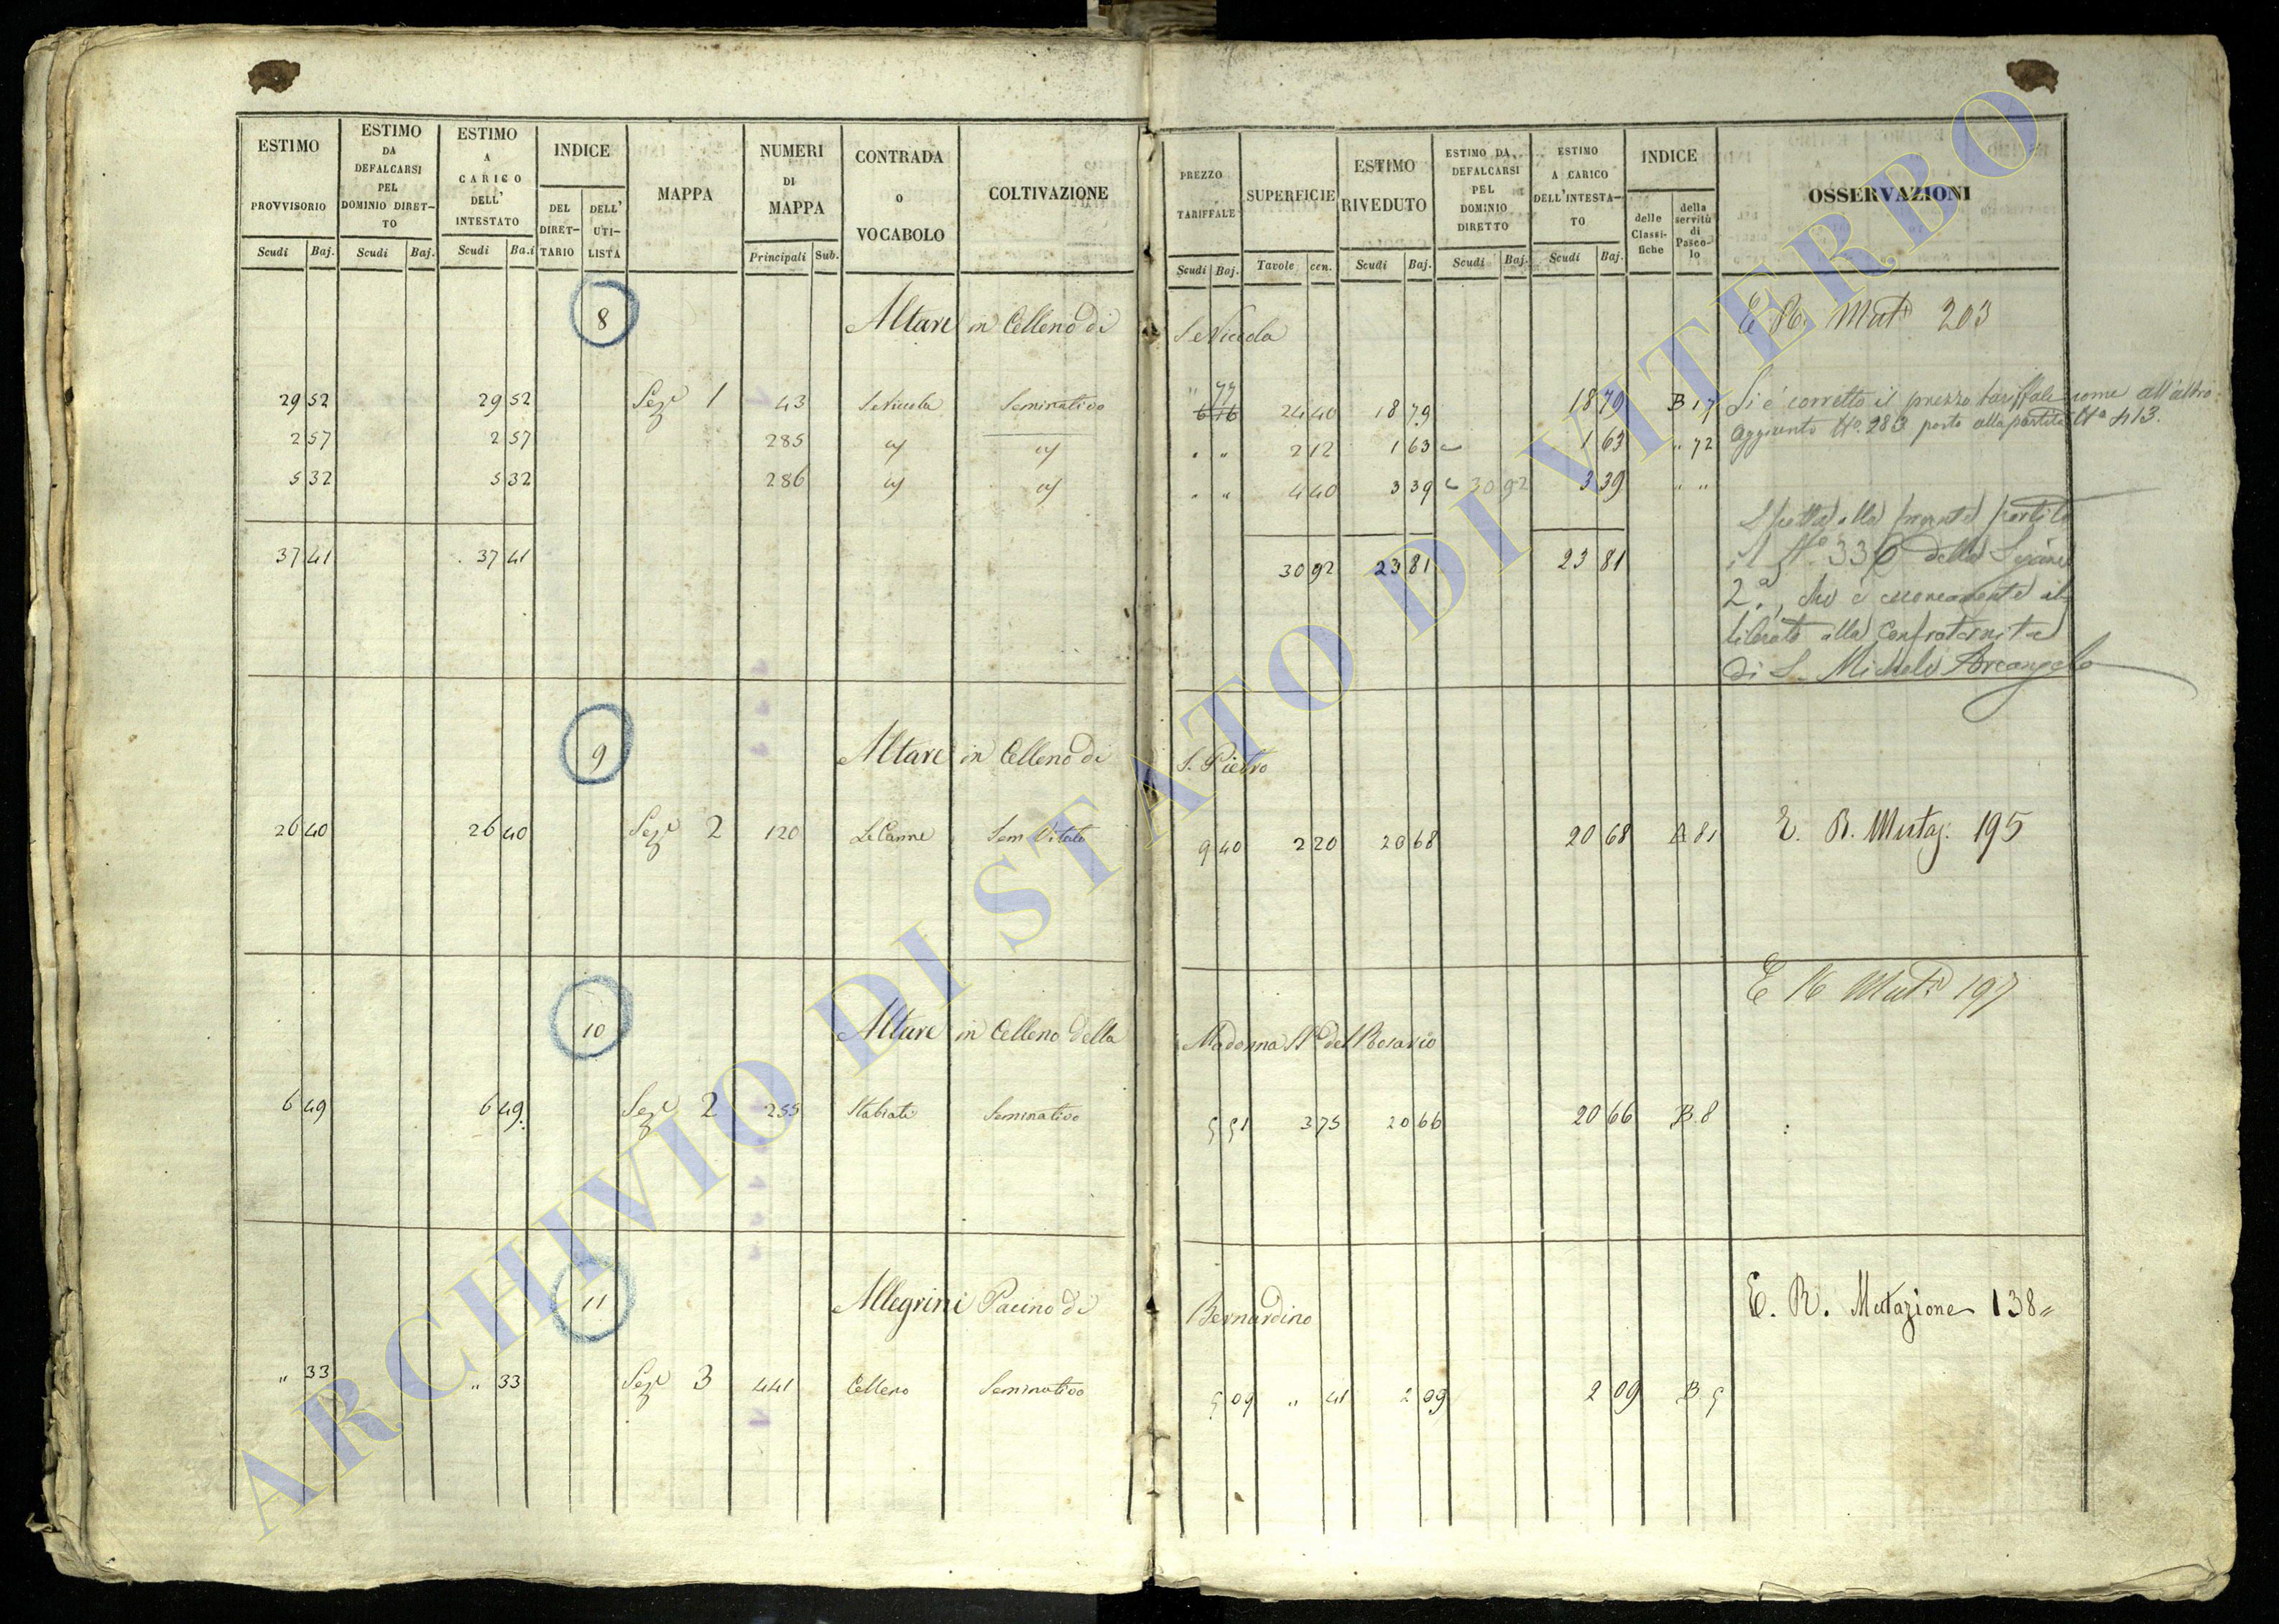 ESTIMO PROVVISORIO
ESTIMO DA DEFALCARSI PEL DOMINIO DIRET-TO
ESTIMO A CARICO DELL' INTESTATO
INDICE
DEL DIRET-TARIO
DELL' UTI-LISTA
MAPPA
NUMERI DI MAPPA
CONTRADA o VOCABOLO
COLTIVAZIONE
Scudi Baj. Scudi Baj. Scudi Ba.i Principali Sub.
PREZZO TARIFFALE
SUPERFICIE
ESTIMO RIVEDUTO
ESTIMO DA DEFALCARSI PEL DOMINIO DIRETTO
ESTIMO A CARICO DELL'INTESTA-TO
INDICE
delle Classi-fiche
della servitù di Pasco-lo
OSSERVAZIONI
Scudi Baj. Tavole cen. Scudi Baj. Scudi Baj. Scudi Baj.
8 Altare in Celleno di S. Niccola
E R. Mutª 203
29 52 29 52 Sezᵉ 1 43 S. Niccola Seminativo " 77 24 40 18 79 18 79 B 17
Si è corretto il prezzo tariffale come all'altro
aggiunto Nº. 283 posto alla partita Nº 413.
2 57 2 57 285 " " 2 12 1 63 1 63 " 72
5 32 5 32 286 " " 4 40 3 39 30 92 3 39 " "
37 41 37 41 30 92 23 81 23 81
Spetta alla presente partita
il Nº 336 della Sezione
2.ª, che è erroneamente al
liberato alla Confraternita
di S. Michele Arcangelo
9 Altare in Celleno di S. Pietro
26 40 26 40 Sezᵉ 2 120 Le Canne Sem Vitato 9 40 2 20 20 68 20 68 A 81
E. R. Mutaz. 195
10 Altare in Celleno della Madonna SSª del Rosario
E R Mutª 197
6 49 6 49 Sezᵉ 2 255 Stabiate Seminativo 5 51 3 75 20 66 20 66 B. 8
11 Allegrini Pacino di Bernardino
E. R. Mutazione 138"
" 33 " 33 Sezᵉ 3 441 Celleno Seminativo 5 09 " 41 2 09 2 09 B 5
ARCHIVIO DI STATO DI VITERBO